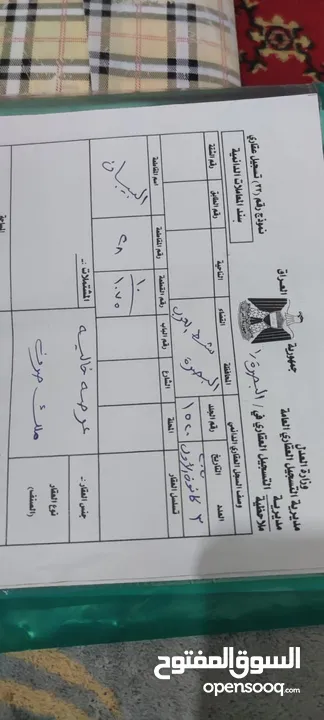 جمهورية
العراق
وزارة العدل
مديرية التسجيل العقاري العامة
مديرية
ملاحظية التسجيل العقاري في / البصرة ١
نموذج رقم (٢٢) تسجيل عقاري
سند المعاملات الدائمية
وصف السجل العقاري الدائمي
المحافظة
القضاء
الناحية
رقم الطابق
رقم الشقة
العدد
التاريخ
رقم الجلد
٣
كانون الاول
١٥٢٠
البصرة
تسلسل العقار
المحلة
الشارع
رقم الباب
رقم القطعة
رقم المقاطعة
اسم المقاطعة
١٠
١٠٧٥
٢٨
جنس العقار :-
المشتملات :-
عرصة خالية
نوع العقار
(الصنف)
ملك صرف
المساحة
السوق المفتوح
opensooq.com